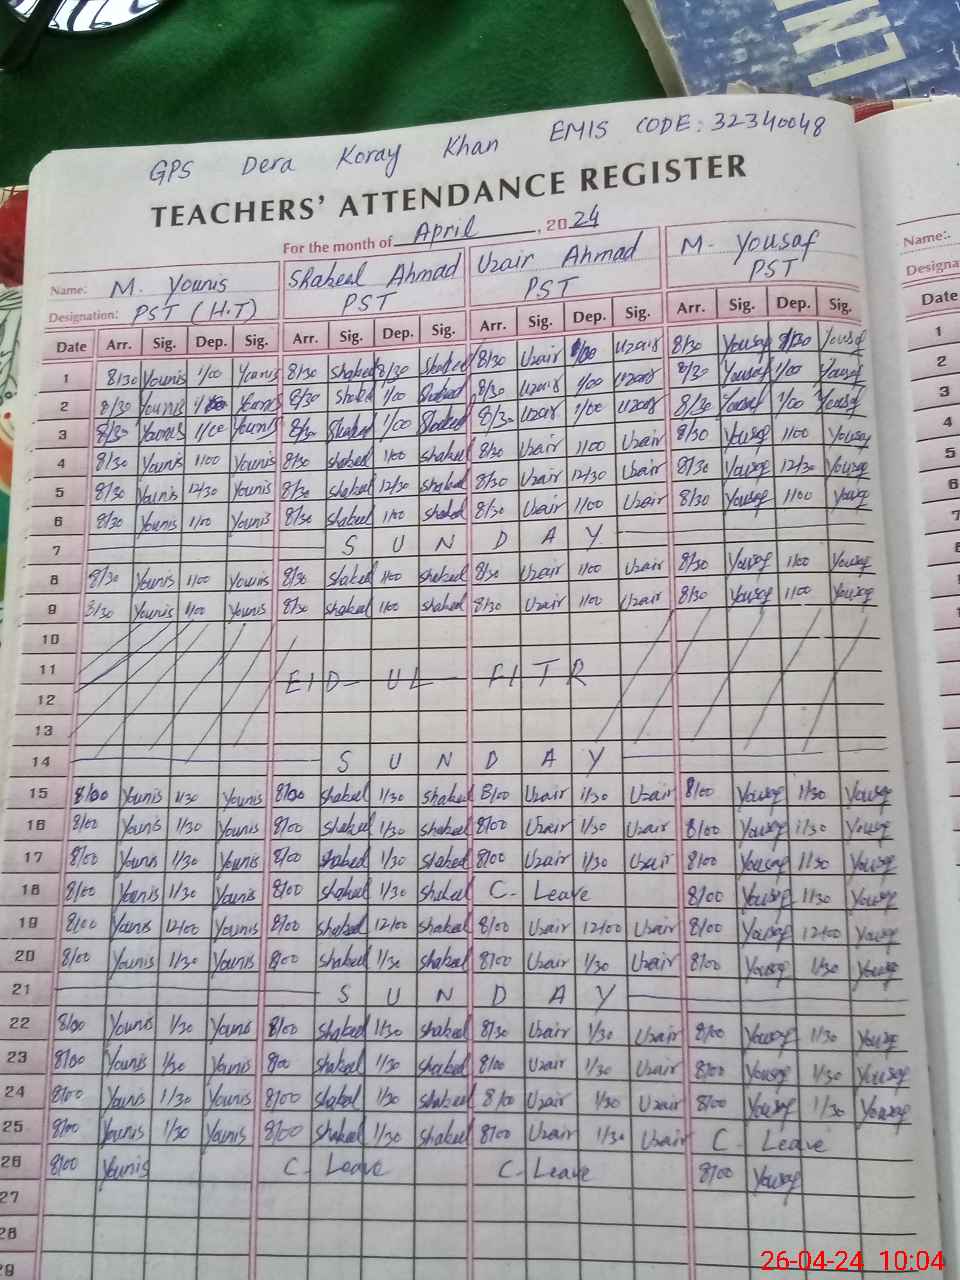 LENT
GPS Dera Koray Khan EMIS CODE: 32340048
TEACHERS' ATTENDANCE REGISTER
For the month of April, 2024
Name: M. Younis Shakeel Ahmad Uzair Ahmad M. Yousaf Name:.
Designation: PST (H.T) PST PST PST Designa
Date Arr. Sig. Dep. Sig. Arr. Sig. Dep. Sig. Arr. Sig. Dep. Sig. Arr. Sig. Dep. Sig. Date
1 8/30 Younis 1/00 Younis 8/30 Shakeel 8/30 Shakeel 8/30 Uzair 1/00 Uzair 8/30 Yousaf Yousaf 1
2 8/30 Younis Younis 8/30 Shakeel 1/00 Shakeel 8/30 Uzair 1/00 Uzair 8/30 Yousaf 1/00 Yousaf 2
3 8/30 Younis 1/00 Younis 8/30 Shakeel 1/00 Shakeel 8/30 Uzair 1/00 Uzair 8/30 Yousaf 1/00 Yousaf 3
4 8/30 Younis 1/00 Younis 8/30 Shakeel 1/00 Shakeel 8/30 Uzair 1/00 Uzair 8/30 Yousaf 1/00 Yousaf 4
5 8/30 Younis 12/30 Younis 8/30 Shakeel 12/30 Shakeel 8/30 Uzair 12/30 Uzair 8/30 Yousaf 12/30 Yousaf 5
6 8/30 Younis 1/00 Younis 8/30 Shakeel 1/00 Shakeel 8/30 Uzair 1/00 Uzair 8/30 Yousaf 1/00 Yousaf 6
7 S U N D A Y 7
8 8/30 Younis 1/00 Younis 8/30 Shakeel 1/00 Shakeel 8/30 Uzair 1/00 Uzair 8/30 Yousaf 1/00 Yousaf
9 8/30 Younis 1/00 Younis 8/30 Shakeel 1/00 Shakeel 8/30 Uzair 1/00 Uzair 8/30 Yousaf 1/00 Yousaf
10
11 EID - UL - FITR
12
13
14 S U N D A Y
15 8/00 Younis 1/30 Younis 8/00 Shakeel 1/30 Shakeel 8/00 Uzair 1/30 Uzair 8/00 Yousaf 1/30 Yousaf
16 8/00 Younis 1/30 Younis 8/00 Shakeel 1/30 Shakeel 8/00 Uzair 1/30 Uzair 8/00 Yousaf 1/30 Yousaf
17 8/00 Younis 1/30 Younis 8/00 Shakeel 1/30 Shakeel 8/00 Uzair 1/30 Uzair 8/00 Yousaf 1/30 Yousaf
18 8/00 Younis 1/30 Younis 8/00 Shakeel 1/30 Shakeel C - Leave 8/00 Yousaf 1/30 Yousaf
19 8/00 Younis 12/00 Younis 8/00 Shakeel 12/00 Shakeel 8/00 Uzair 12/00 Uzair 8/00 Yousaf 12/00 Yousaf
20 8/00 Younis 1/30 Younis 8/00 Shakeel 1/30 Shakeel 8/00 Uzair 1/30 Uzair 8/00 Yousaf 1/30 Yousaf
21 S U N D A Y
22 8/00 Younis 1/30 Younis 8/00 Shakeel 1/30 Shakeel 8/30 Uzair 1/30 Uzair 8/00 Yousaf 1/30 Yousaf
23 8/00 Younis 1/30 Younis 8/00 Shakeel 1/30 Shakeel 8/00 Uzair 1/30 Uzair 8/00 Yousaf 1/30 Yousaf
24 8/00 Younis 1/30 Younis 8/00 Shakeel 1/30 Shakeel 8/00 Uzair 1/30 Uzair 8/00 Yousaf 1/30 Yousaf
25 8/00 Younis 1/30 Younis 8/00 Shakeel 1/30 Shakeel 8/00 Uzair 1/30 Uzair C - Leave
26 8/00 Younis C - Leave C - Leave 8/00 Yousaf
27
28
29
26-04-24 10:04